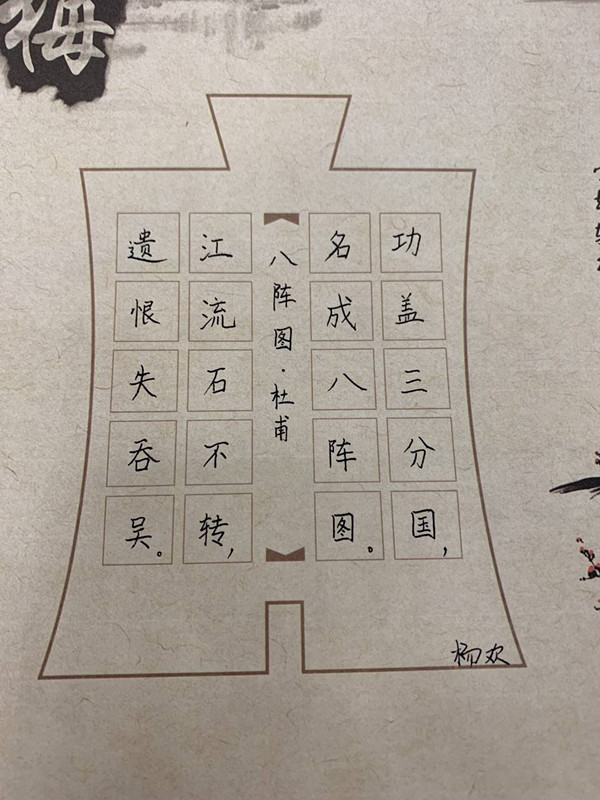 梅
功盖三分国,
名成八阵图。
八阵图·杜甫
江流石不转,
遗恨失吞吴。
杨欢